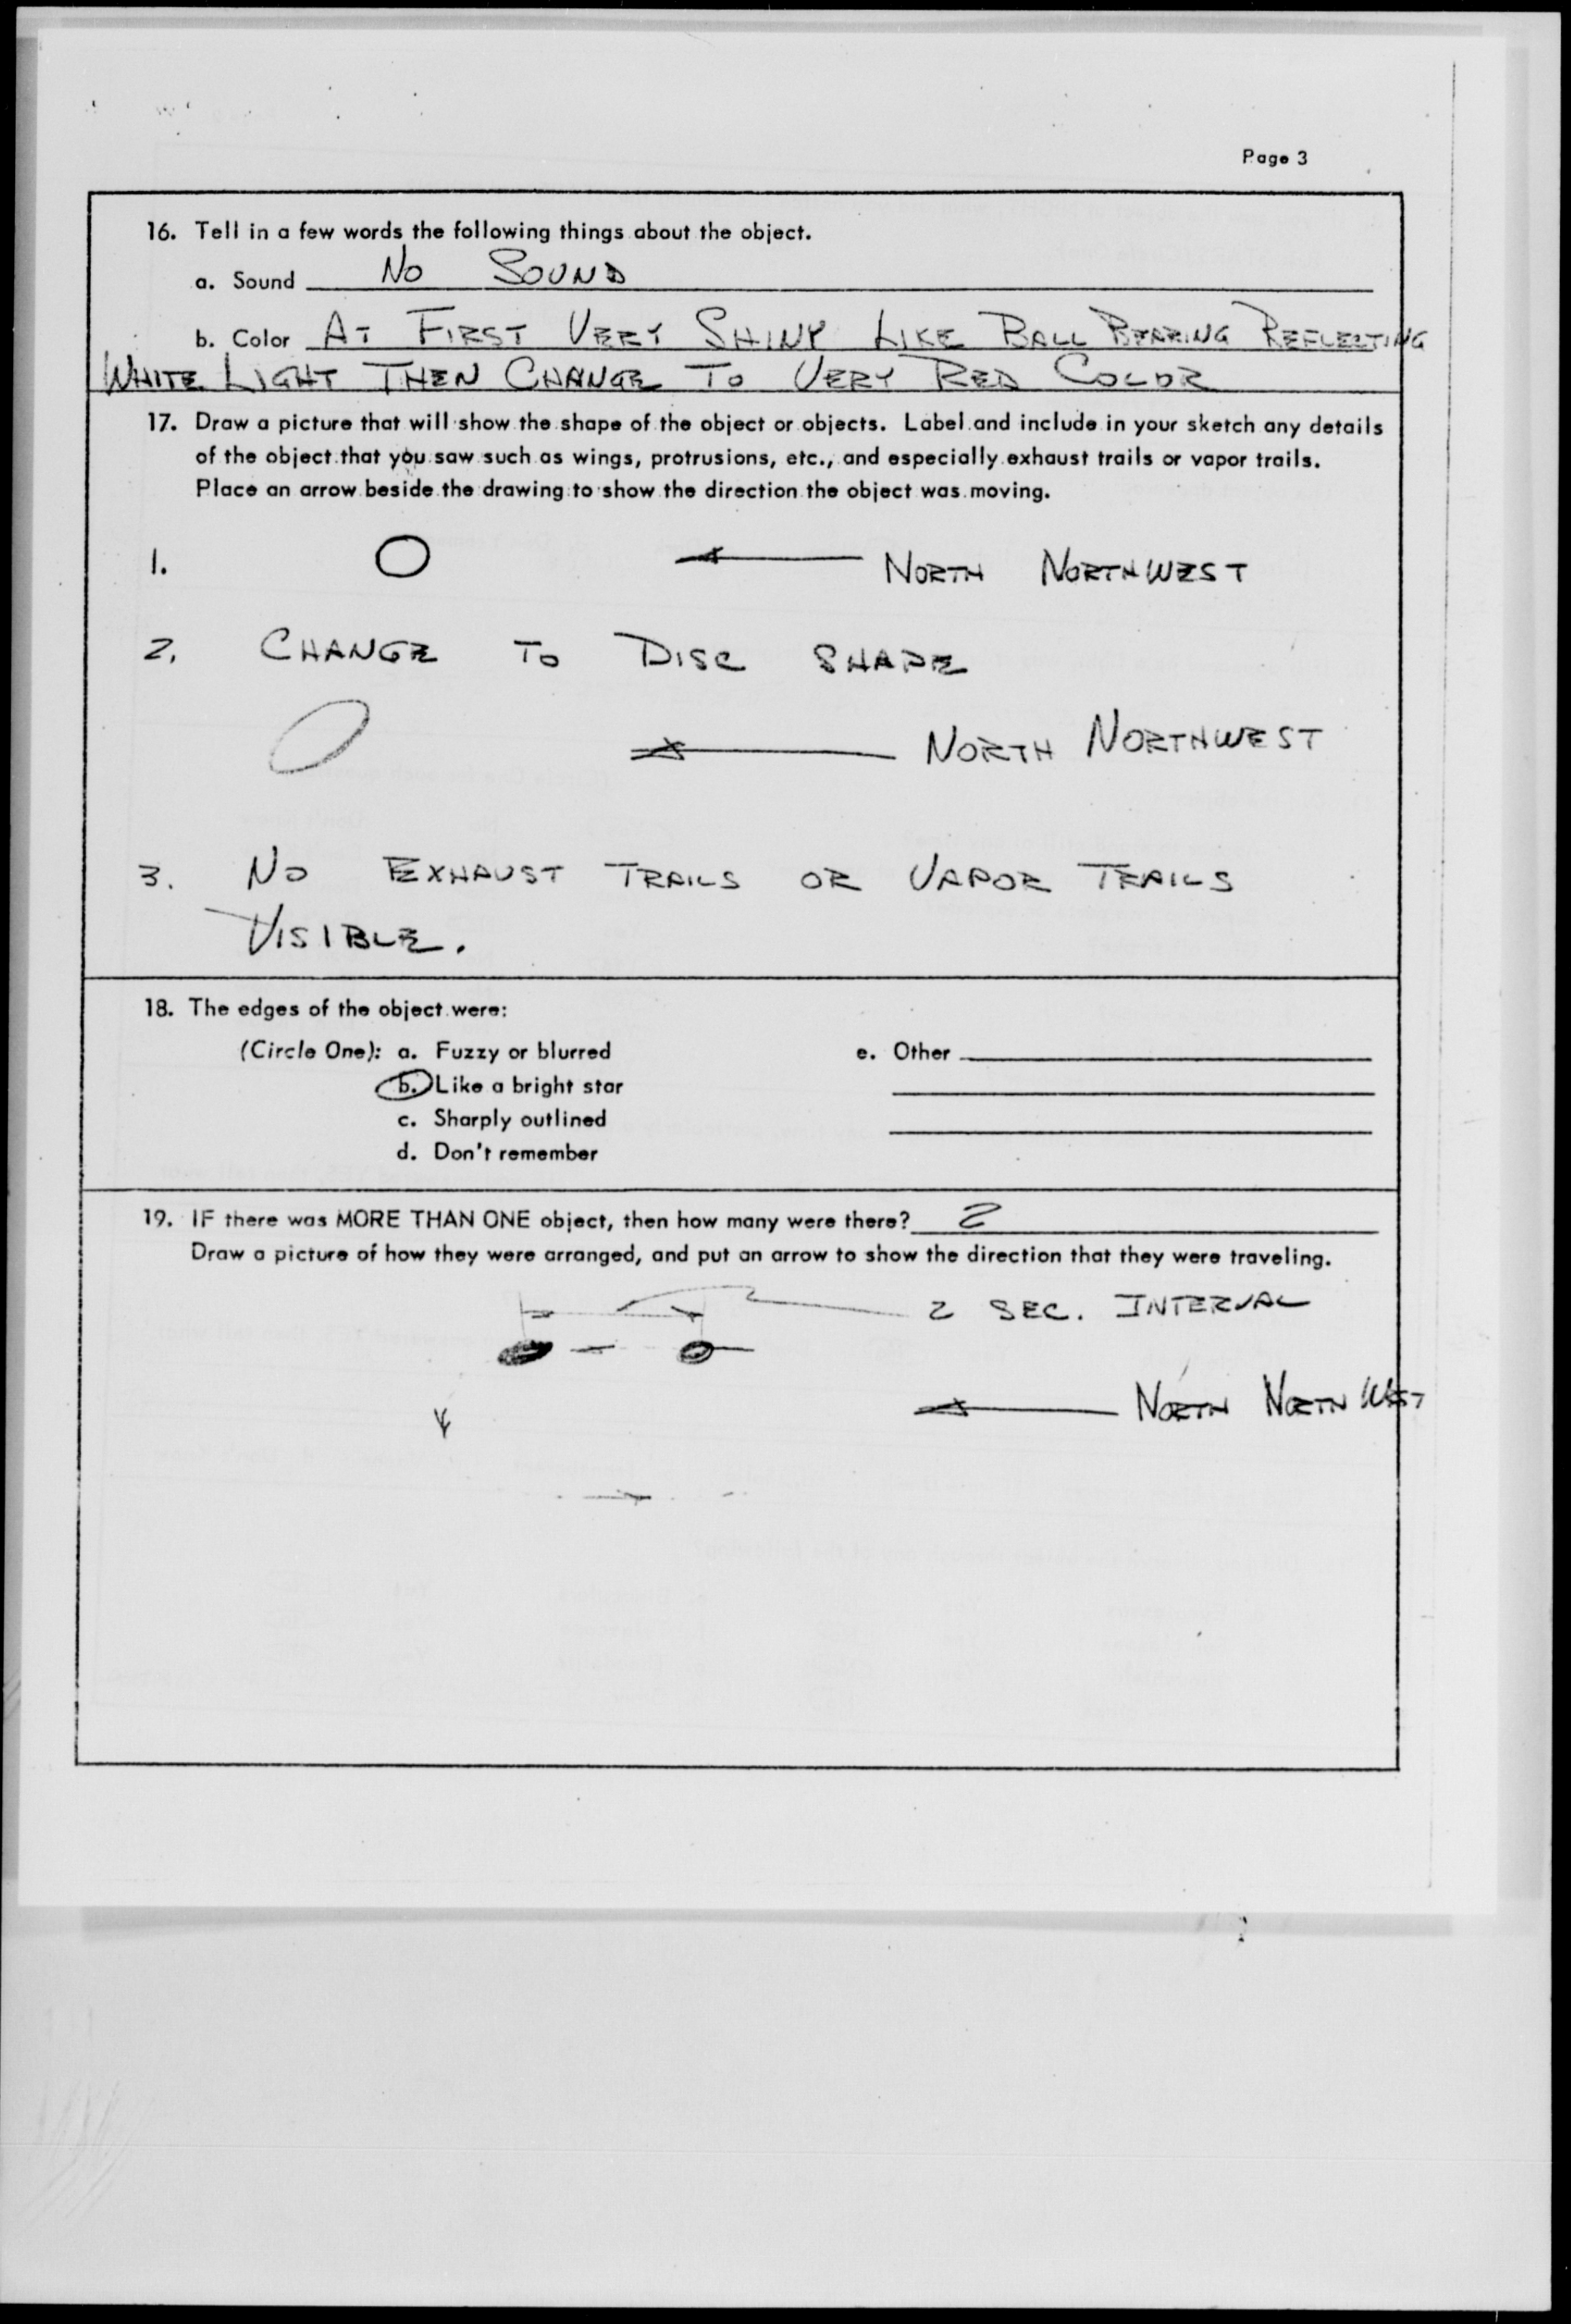 Page 3
16. Tell in a few words the following things about the object.
a. Sound No SOUND
b. Color AT FIRST VERY SHINY LIKE BALL BEARING REFLECTING
WHITE LIGHT THEN CHANGE TO VERY RED COLOR
17. Draw a picture that will show the shape of the object or objects. Label and include in your sketch any details
of the object that you saw such as wings, protrusions, etc., and especially exhaust trails or vapor trails.
Place an arrow beside the drawing to show the direction the object was moving.
1. NORTH NORTHWEST
2. CHANGE TO DISC SHAPE
NORTH NORTHWEST
3. NO EXHAUST TRAILS OR VAPOR TRAILS
VISIBLE.
18. The edges of the object were:
(Circle One): a. Fuzzy or blurred
b. Like a bright star
c. Sharply outlined
d. Don't remember
e. Other
19. IF there was MORE THAN ONE object, then how many were there? 2
Draw a picture of how they were arranged, and put an arrow to show the direction that they were traveling.
2 SEC. INTERVAL
NORTH NORTH WEST